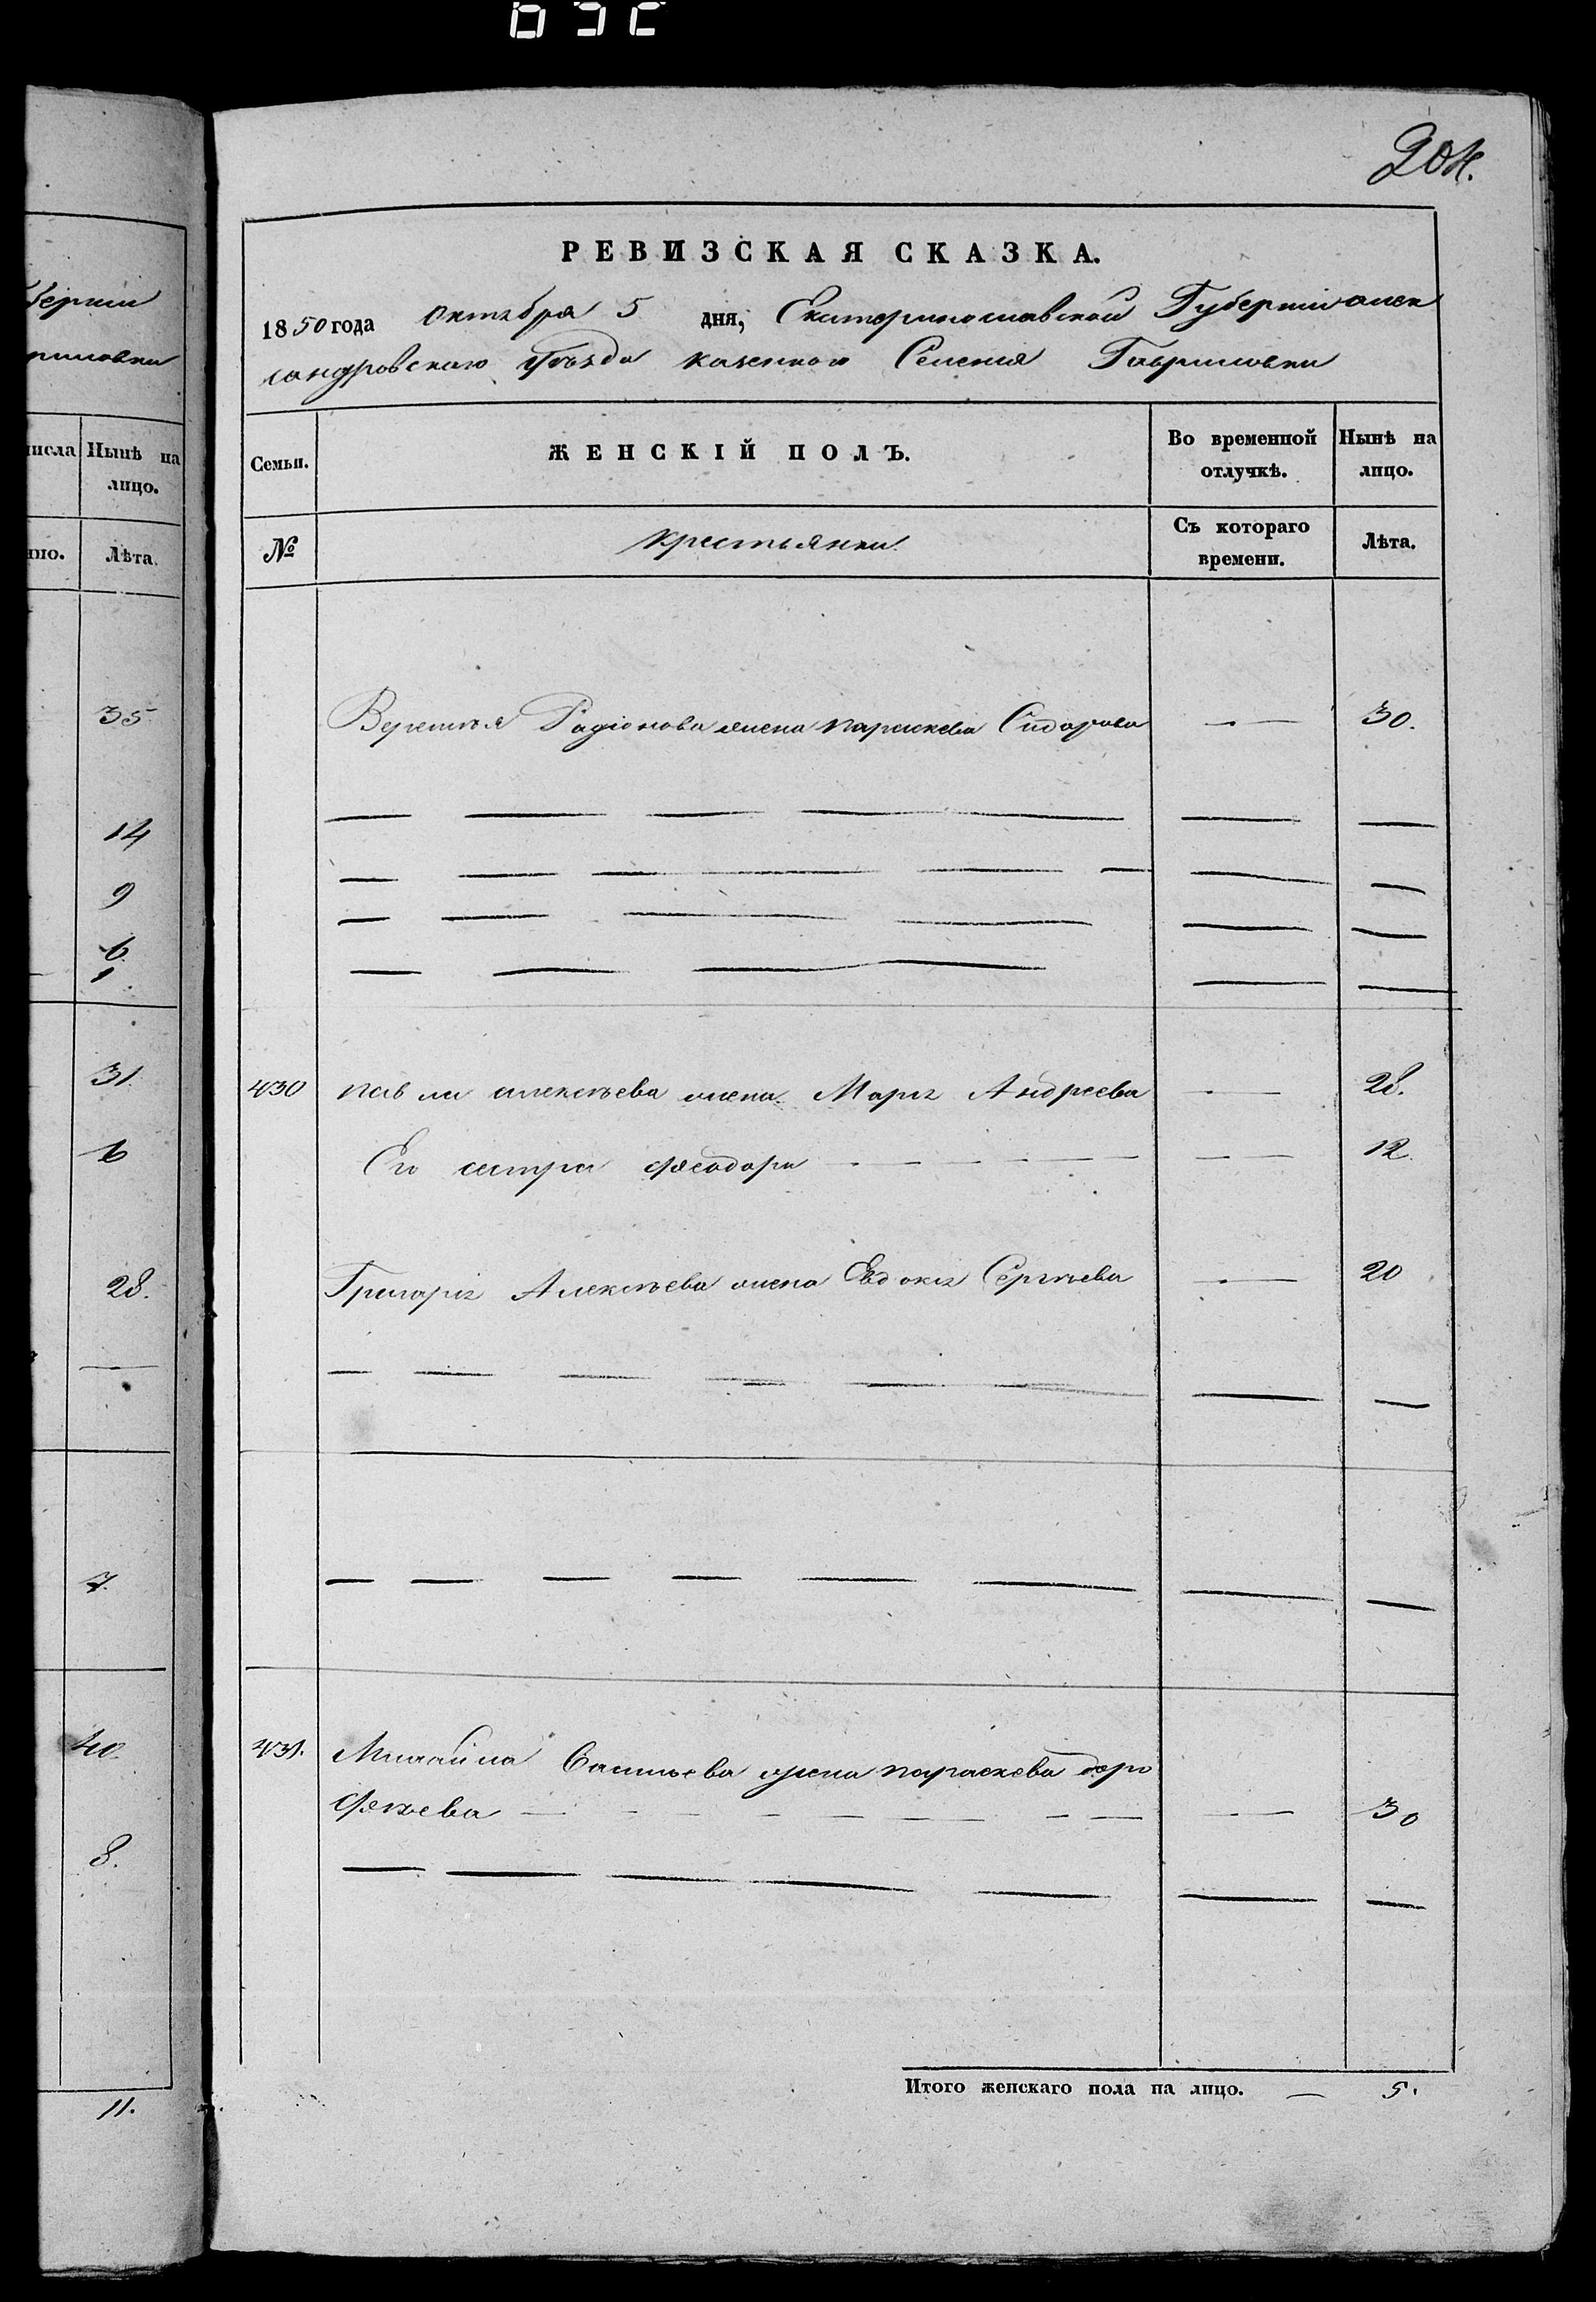 204.
РЕВИЗСКАЯ СКАЗКА.
1850 года Октября 5 дня, Екатеринославской Губерніи алек
сандровскаго Уѣзда казеннаго Селенія Гавриловки
Семьи. ЖЕНСКІЙ ПОЛЪ. Во временной отлучкѣ. Нынѣ на лицо.
№ крестьянки. Съ котораго времени. Лѣта.
Радіонова жена параскева Сидорова — 30.
430 павла алексѣева жена Марія Андреева — 28.
Его сестра Феодора — 12.
Григорія Алексѣева жена Евдокія Сергѣева — 20
431. Михайла Савельева жена параскева доро
Фѣева — 30
Итого женскаго пола на лицо. — 5.
берніи
риловки
числа Нынѣ на
лицо.
Лѣта.
35
14
9
6
1
31
6
28.
7.
40.
8.
11.